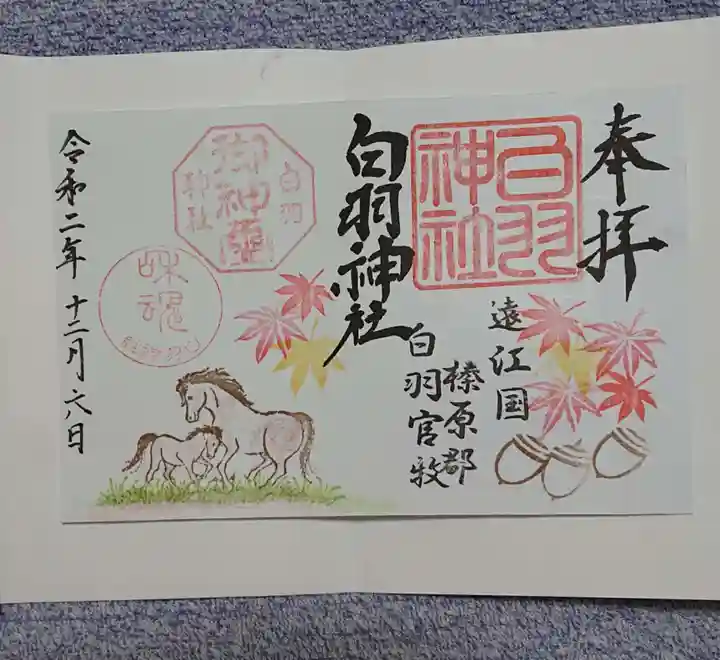 奉拝
白羽
神社
遠江国
榛原郡
白羽官牧
白羽神社
白羽
御神璽
神社
和魂
令和二年十二月六日